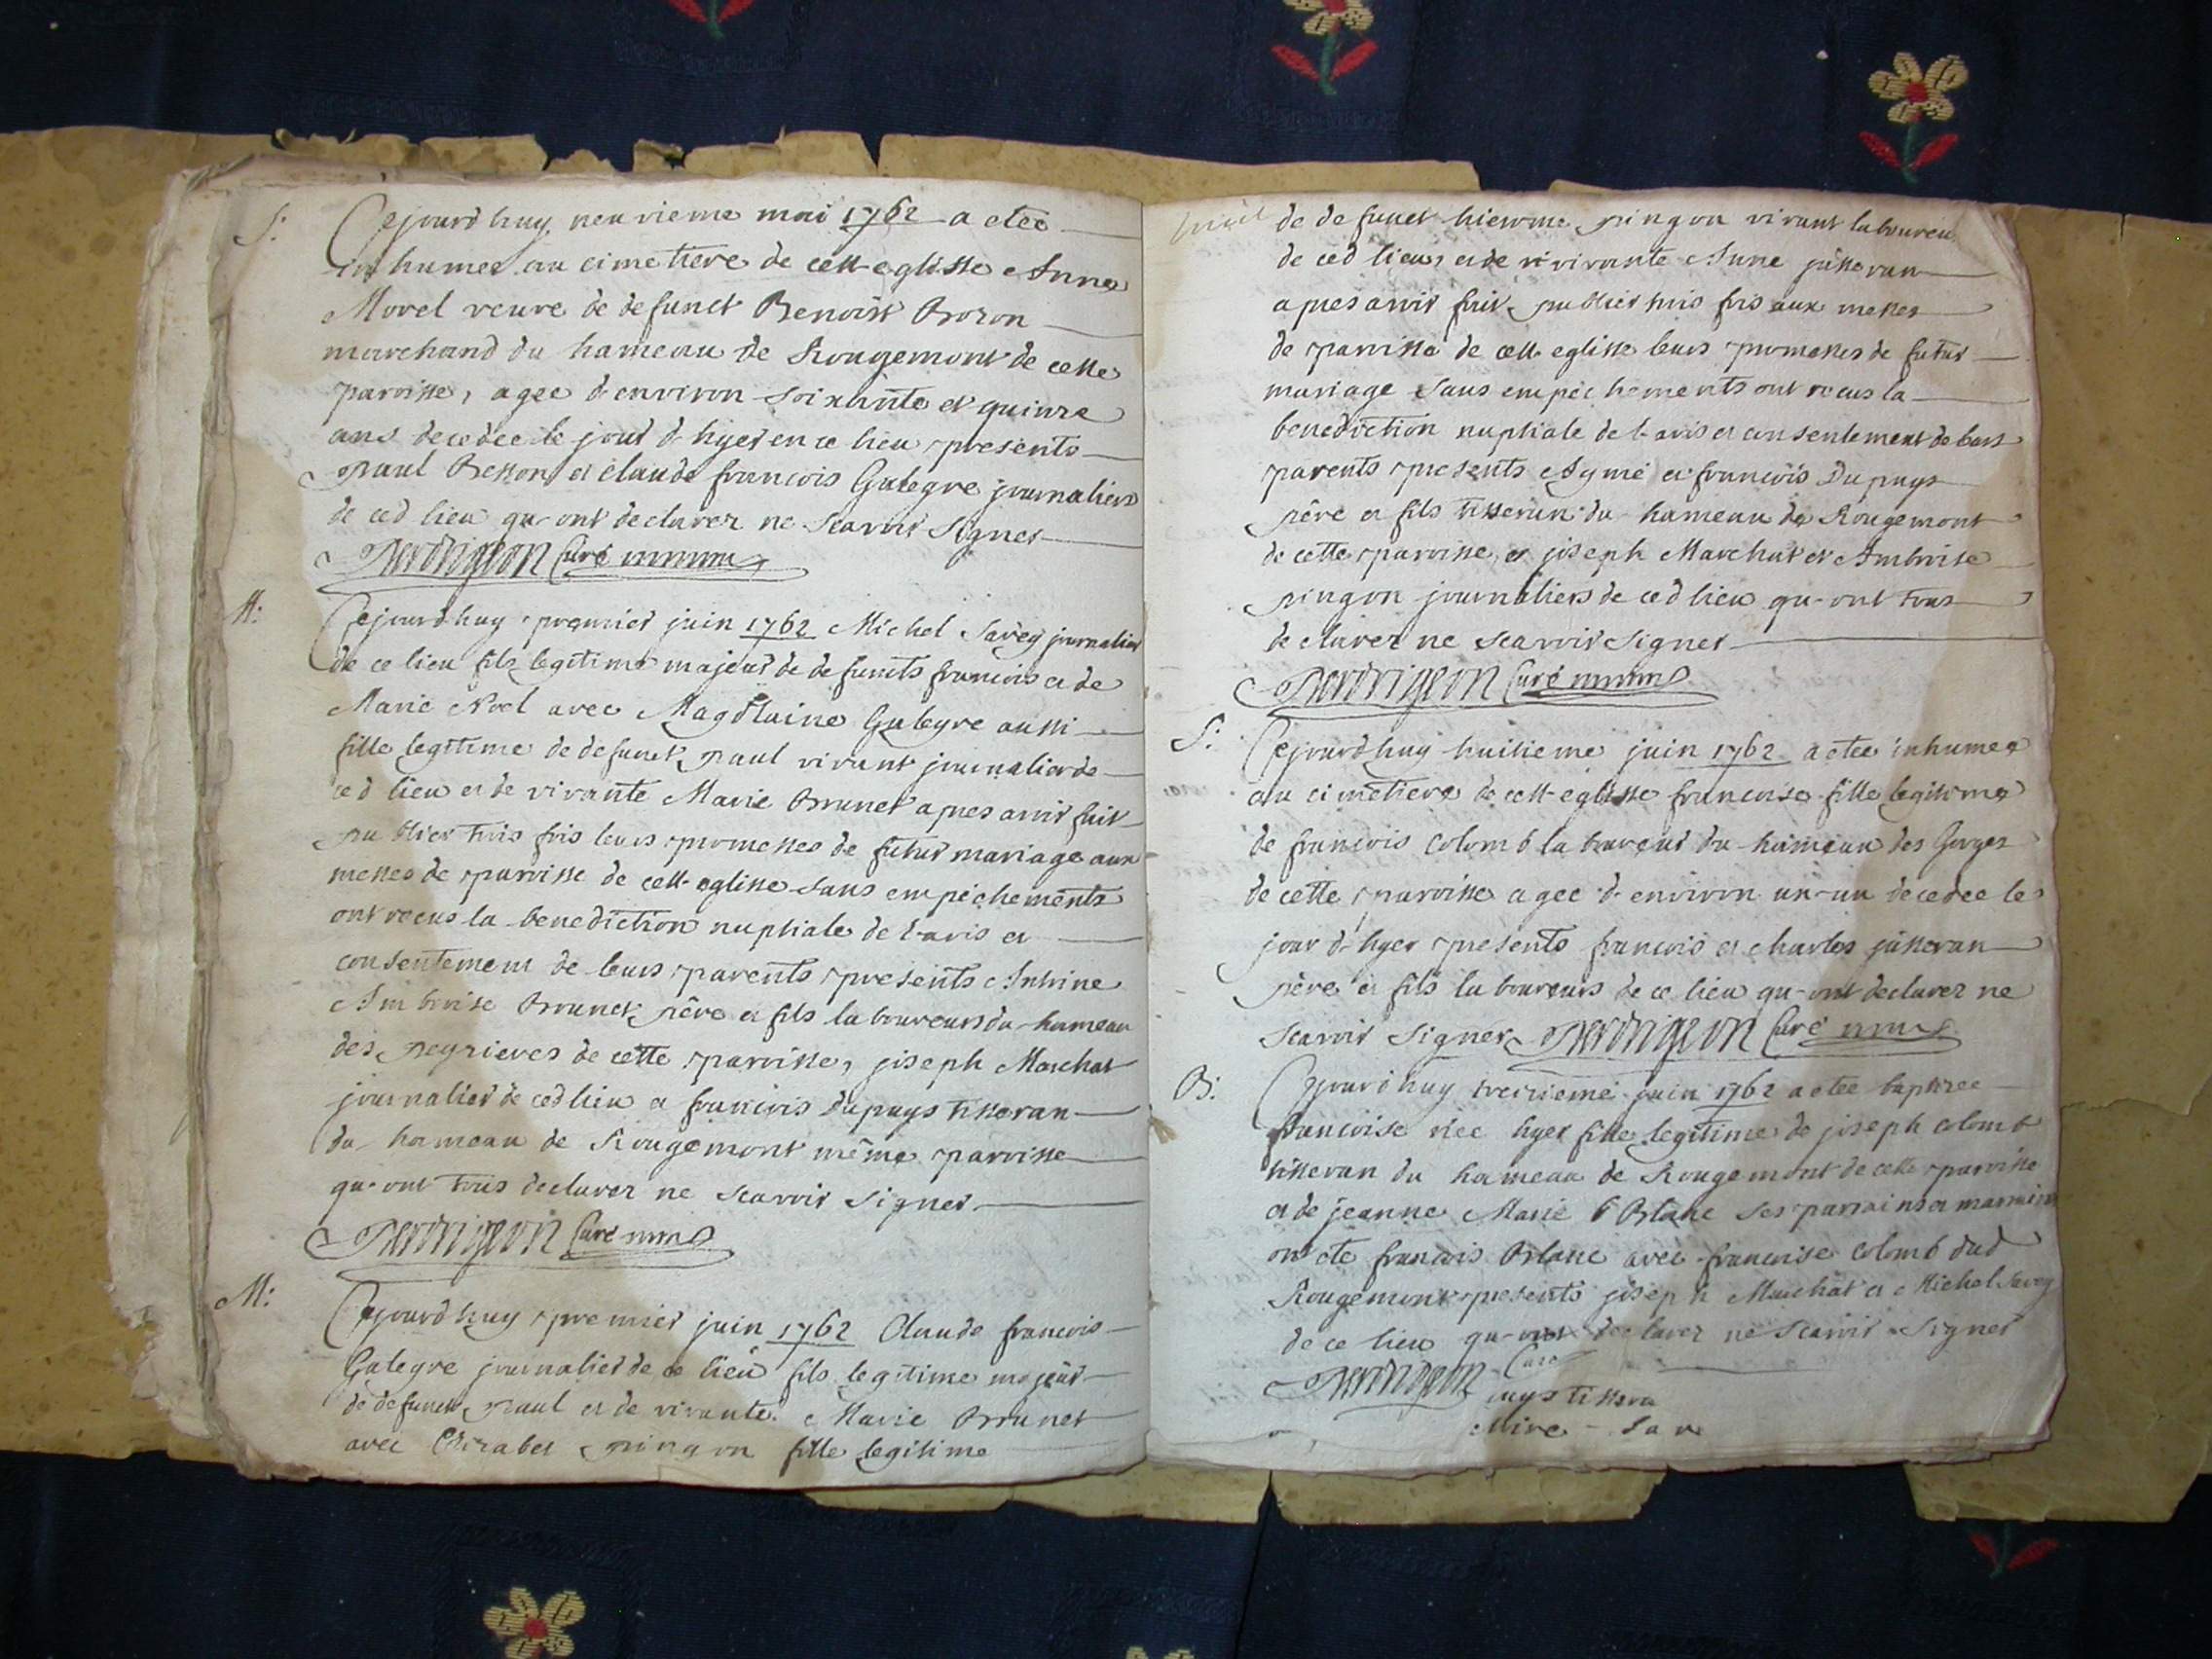 S: Cejourd huy neuvieme mai 1762 a etée
inhumée au cimetiere de cett eglisse Anne
Morel veuve de defunct Benoist Bozon
marchand du hameau de Rougemont de cette
paroisse, agee d environ soixante et quinze
ans decedée le jour d hyer en ce lieu presents
paul Besson et claude francois Galegre journaliers
de ced lieu qu-ont declarer ne scavoir signer
Perdrigeon Curé
M: Cejourd huy premier juin 1762 Michel Savey journalier
de ce lieu fils legitime majeur de defuncts francois et de
Marie Noel avec Magdlaine Galegre aussi
fille legitime de defunct paul vivant journalier de
ced lieu et de vivante Marie Brunet apres avoir fait
publier trois fois leurs promesses de futur mariage aux
messes de paroisse de cett eglisse sans empéchements
ont recus la benediction nuptiale de l-avis et
consentement de leurs parents presents Antoine
Ambroise Brunet père et fils laboureurs du hameau
des peyrieres de cette paroisse, joseph Marchat
journalier de ced lieu et francois Dupuys tisseran
du hameau de Rougemont même paroisse
qu-ont tous declarer ne scavoir signer
Perdrigeon Curé
M: Cejourd huy premier juin 1762 Claude francois
Galegre journalier de ce lieu fils legitime majeur
de defunct paul et de vivante Marie Brunet
avec Elizabet pingon fille legitime
de defunct hierome pingon vivant laboureur
de ced lieu, et de vivante Anne jusseran
apres avoir fait publier trois fois aux messes
de paroisse de cett eglisse leurs promesses de futur
mariage sans empéchements ont recus la
benediction nuptiale de l-avis et consentement de leurs
parents presents Aymé et francois Dupuys
père et fils tisseran du hameau de Rougemont
de cette paroisse, et joseph Marchat et Ambroise
pingon journaliers de ced lieu qu-ont tous
declarer ne scavoir signer
Perdrigeon Curé
S: Cejourd huy huitieme juin 1762 a etée inhumée
au cimetiere de cett eglisse francoise fille legitime
de francois Colomb laboureur du hameau des Gorges
de cette paroisse agee d environ un-an decedée le
jour d hyer presents francois et charles jusseran
père et fils laboureurs de ce lieu qu-ont declarer ne
scavoir signer Perdrigeon Curé
B: Cejourd huy treizieme juin 1762 a etée baptizee
francoise née hyer fille legitime de joseph colomb
tisseran du hameau de Rougemont de cette paroisse
et de jeanne Marie Blanc ses parrains et marraine
ont eté francois Blanc avec francoise colomb dud
Rougemont presents joseph Marchat et Michel Savey
de ce lieu qu-ont declarer ne scavoir signer
Perdrigeon Curé